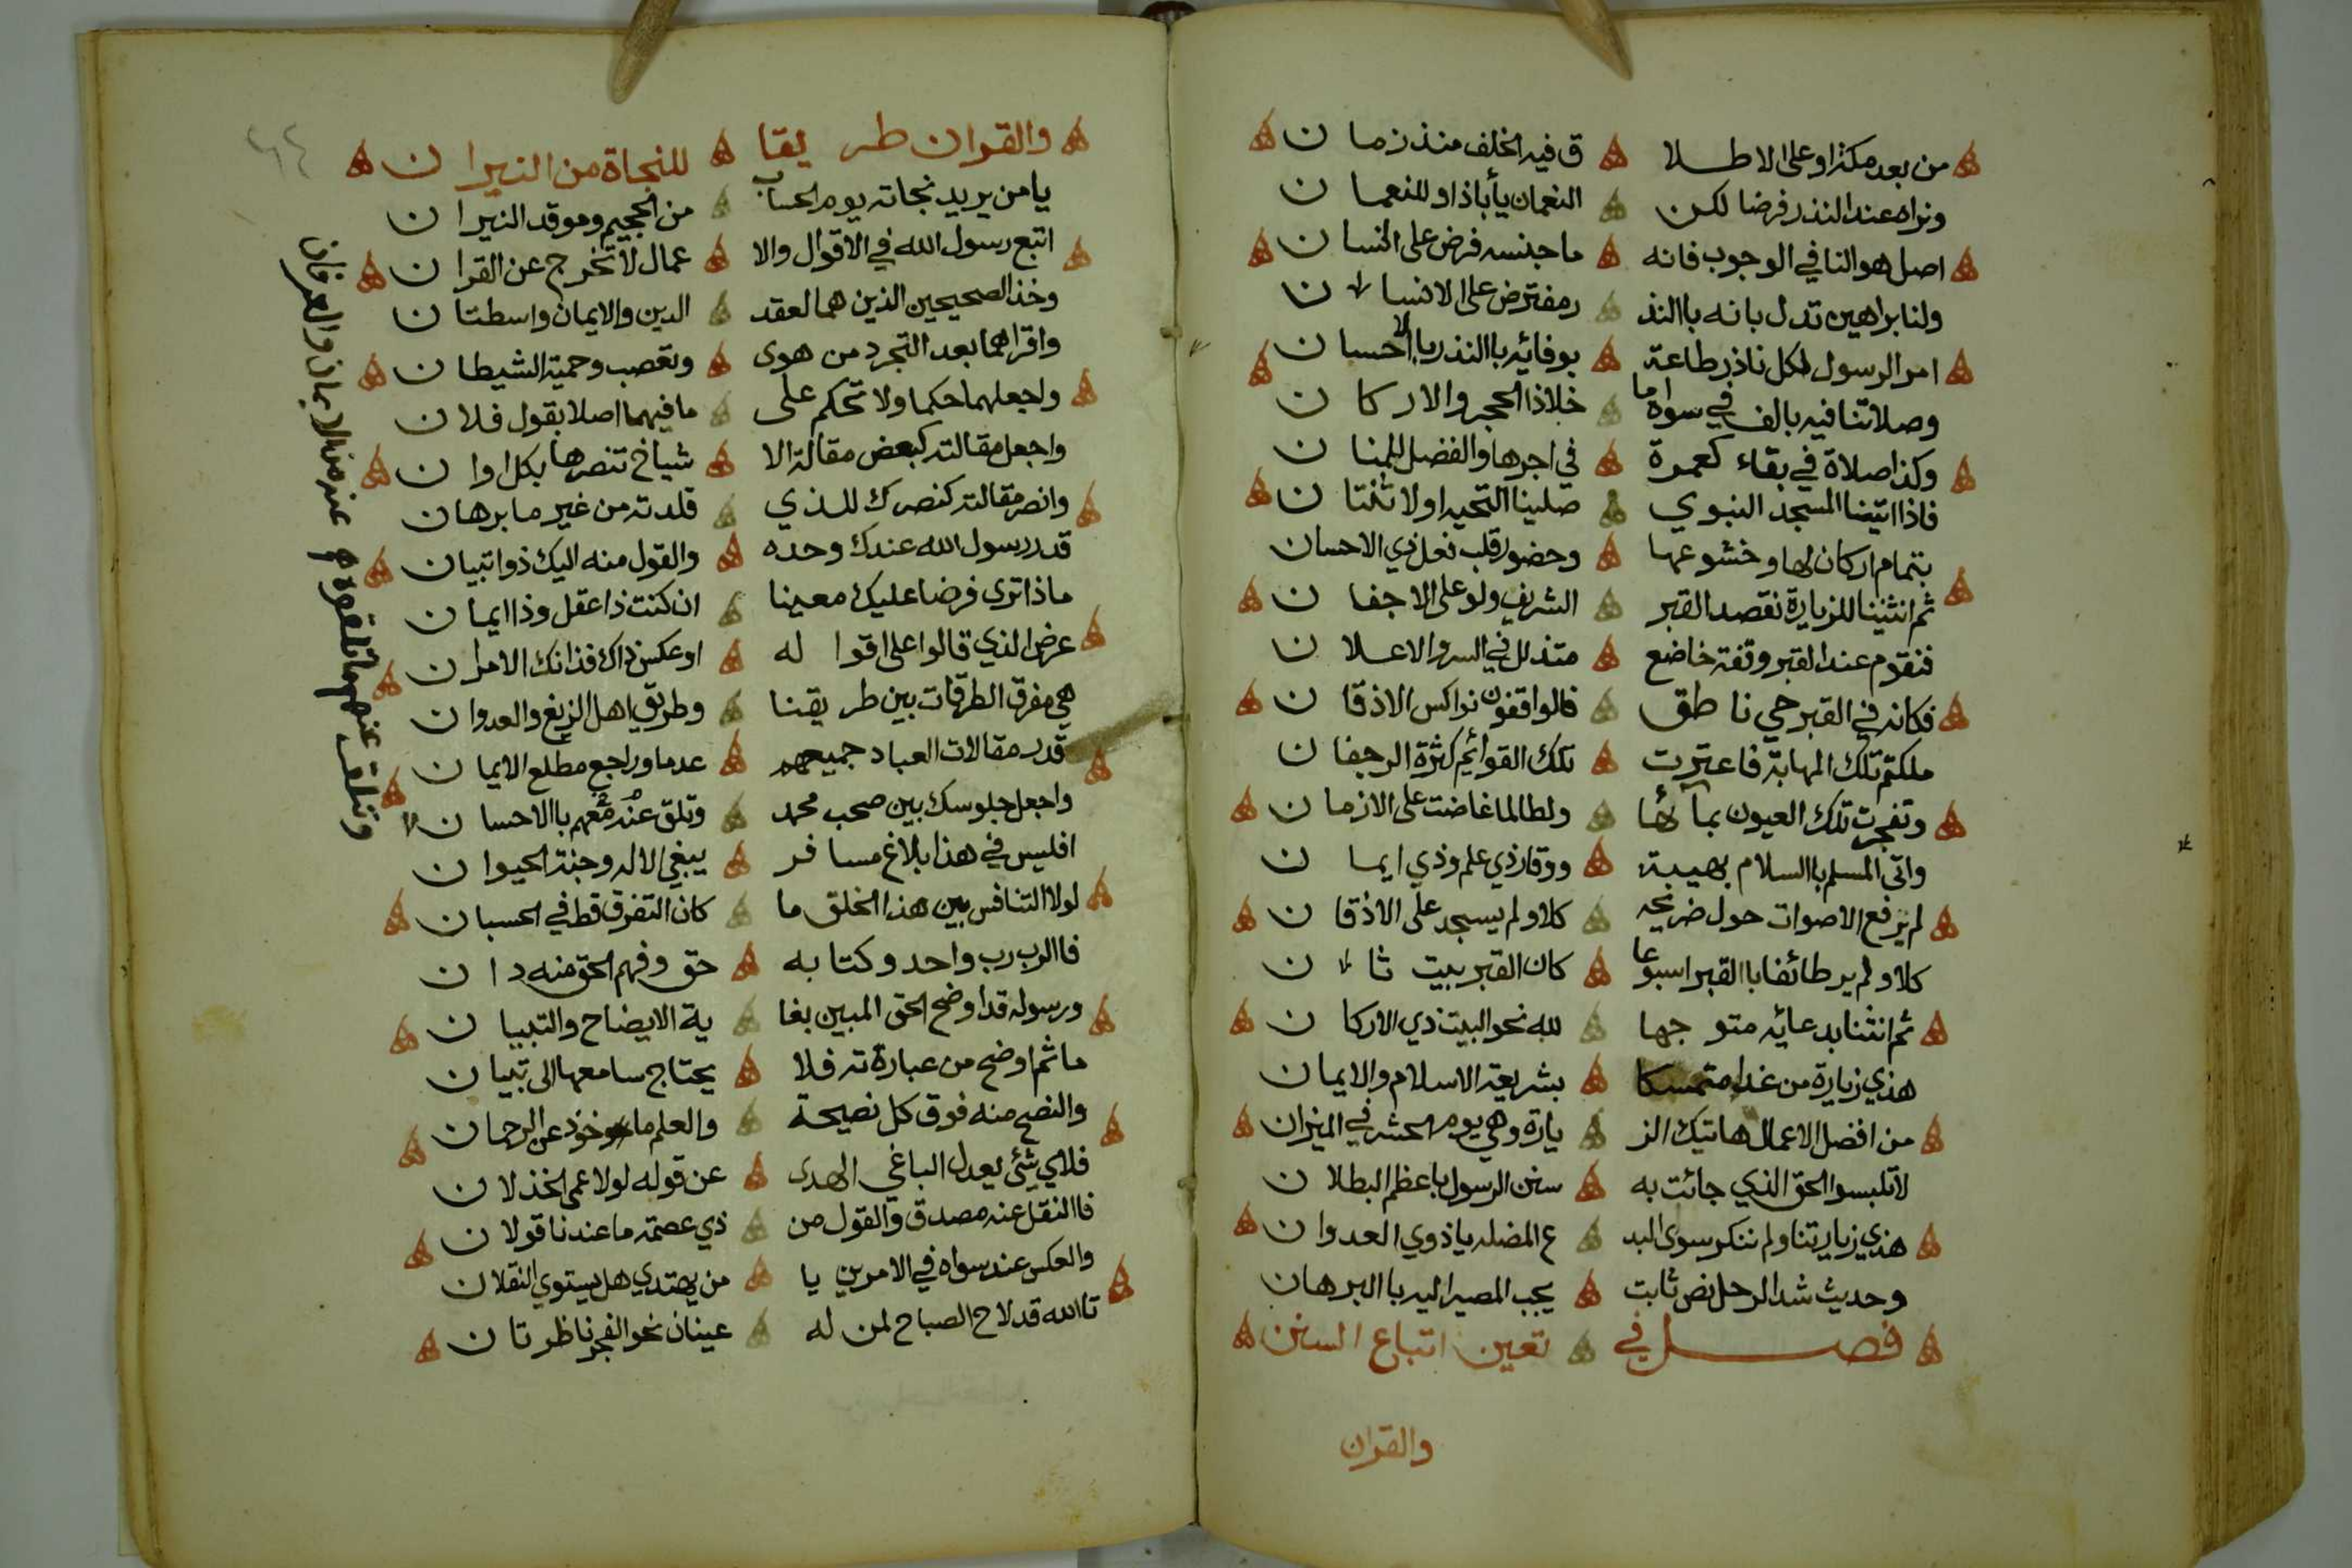 من بعد مكة او على الاطلا ق فيه الخلف منذ زمان
ونراه عند النذر فرضا لكن النعمان يأبا ذا وللنعمان
اصل هو النافي الوجوب فانه ما جنسه فرض على انسان
ولنا براهين تدل بانه باالنذ ر مفترض على الانسان
امر الرسول لكل ناذر طاعة بوفائه باالنذر باالاحسان
وصلاتنا فيه بالف في سواه ما خلا ذا الحجر والاركان
وكذا صلاة في بقاء كعمرة في اجرها والفضل للمنان
فاذا اتينا المسجد النبوي صلينا التحيه اولا ثنتان
بتمام اركان لها وخشوعها وحضور قلب فعل ذي الاحسان
ثم انثنينا للزيارة نقصد القبر الشريف ولو على الاجفان
فنقوم عند القبر وقفة خاضع متذلل في السر والاعلان
فكانه في القبر حي ناطق فالواقفون نواكس الاذقان
ملكتهم تلك المهابة فاعترت تلك القوائم كثرة الرجفان
وتفجرت تلك العيون بمآئها ولطالما غاضت على الازمان
واتى المسلم باالسلام بهيبة ووقار ذي علم وذي ايمان
لم يرفع الاصوات حول ضريحه كلا ولم يسجد على الاذقان
كلا ولم ير طائفا باالقبر اسبوعا كان القبر بيت ثان
ثم انثنا بدعائه متوجها لله نحو البيت ذي الاركان
هذي زيارة من غدا متمسكا بشريعة الاسلام والايمان
من افضل الاعمال هاتيك الز يارة وهي يوم الحشر في الميزان
لا تلبسوا الحق الذي جائت به سنن الرسول باعظم البطلان
هذي زيارتنا ولم ننكر سوى البد ع المضله يا ذوي العدوان
وحديث شد الرحل نص ثابت يجب المصير اليه باالبرهان
فصل في تعين اتباع السنن
والقران
والقران طريقا للنجاة من النيران
يا من يريد نجاته يوم الحساب من الجحيم وموقد النيران
اتبع رسول الله في الاقوال والا عمال لا تخرج عن القران
وخذ الصحيحين الذين هما لعقد الدين والايمان واسطتان
واقراهما بعد التجرد من هوى وتعصب وحمية الشيطان
واجعلهما حكما ولا تحكم على ما فيهما اصلا بقول فلان
واجعل مقالته كبعض مقالة الا شياخ تنصرها بكل اوان
وانصر مقالته كنصرك للذي قلدته من غير ما برهان
قدر رسول الله عندك وحده والقول منه اليك ذو اتبيان
ماذا ترى فرضا عليك معينا ان كنت ذا عقل وذا ايمان
عرض الذي قالوا على اقواله او عكس ذاك فذانك الامران
هي مفرق الطرقات بين طريقنا وطريق اهل الزيغ والعدوان
قدر مقالات العباد جميعهم عدما وراجع مطلع الايمان
واجعل جلوسك بين صحب محمد وتلق عنهم معهم باالاحسان
وتلق عنهم ما تلقوه هم عنه من الايمان والعرفان
افليس في هذا بلاغ مسافر يبغي الاله وجنة الحيوان
لولا التنافس بين هذا الخلق ما كان التفرق قط في الحسبان
فاالرب رب واحد وكتابه حق وفهم الحق منه دان
ورسوله قد اوضح الحق المبين بغا ية الايضاح والتبيان
ما ثم اوضح من عبارة ته فلا يحتاج سامعها الى تبيان
والنصح منه فوق كل نصيحة والعلم ماخوذ عن الرحمان
فلاي شئ يعدل الباغي الهدى عن قوله لولا عمى الخذلان
فاالنقل عنه مصدق والقول من ذي عصمة ما عندنا قولان
والعكس عند سواه في الامرين يا من يهتدي هل يستوي النقلان
تاالله قد لاح الصباح لمن له عينان نحو الفجر ناظرتان